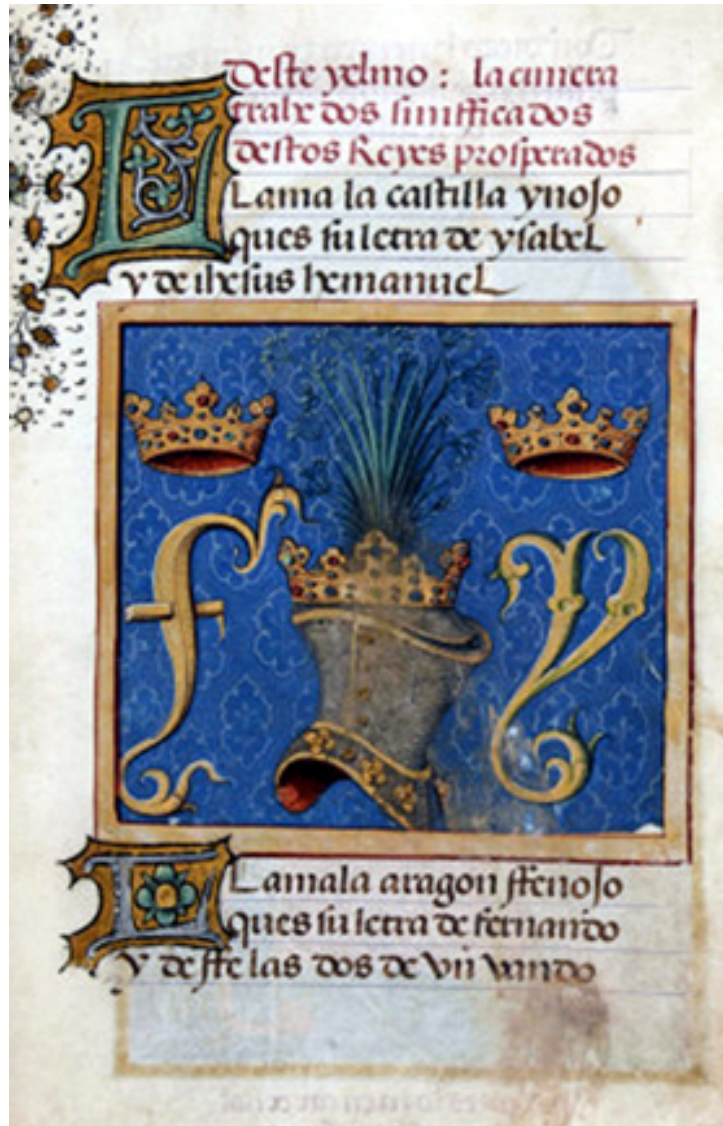 Deste yelmo : la cimera
trahe dos siniffica dos
destos Reyes prosperados
LLama la castilla ynojo
ques su letra de ysabel
y de ihesus hemanuel
F Y
LLamala aragon ffenojo
ques su letra de fernando
y de ffe las dos de vn vando